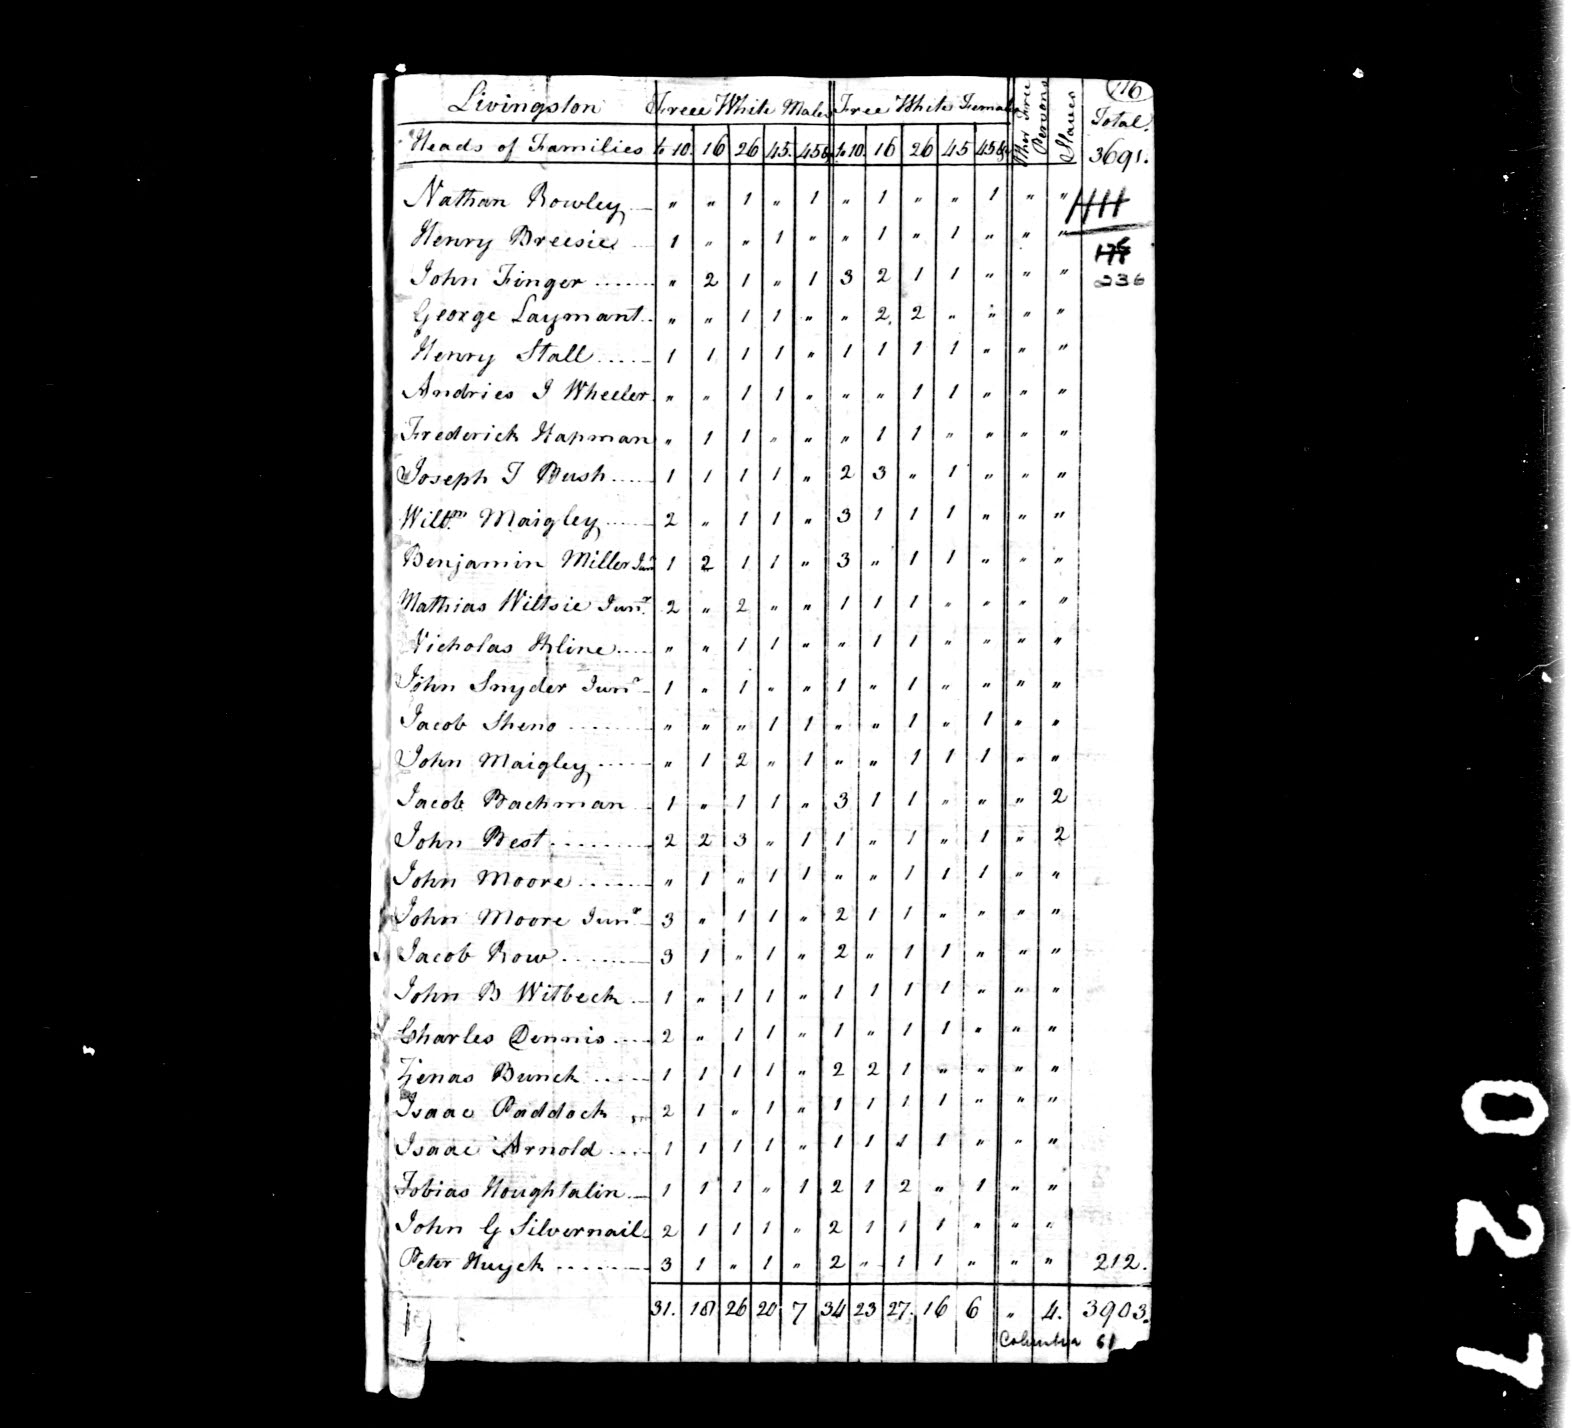 Livingston Freee White Males Free White Females Other Free Persons Slaves 116 Total
Heads of Families to 10 16 26 45 45& to 10 16 26 45 45& 3691.
Nathan Rowley " " 1 " 1 " 1 " " 1 " "
Henry Breesie 1 " " 1 " " 1 " 1 " " "
John Finger " 2 1 " 1 3 2 1 1 " " " 236
George Laymant " " 1 1 " " 2 2 " " " "
Henry Stall 1 1 1 1 " 1 1 1 1 " " "
Andries J Wheeler " " 1 1 " " " 1 1 " " "
Frederick Hapman " 1 1 " " " 1 1 " " " "
Joseph T Bush 1 1 1 1 " 2 3 " 1 " " "
Willm Maigley 2 " 1 1 " 3 1 1 1 " " "
Benjamin Miller Junr 1 2 1 1 " 3 " 1 1 " " "
Mathias Wiltsie Junr 2 " 2 " " 1 1 1 " " " "
Nicholas Kline " " 1 1 " " 1 1 " " " "
John Snyder Junr 1 " 1 " " 1 " 1 " " " "
Jacob Sheno " " " 1 1 " " 1 " 1 " "
John Maigley " 1 2 " 1 " " 1 1 1 " "
Jacob Bachman 1 " 1 1 " 3 1 1 " " " 2
John Best 2 2 3 " 1 1 " 1 " 1 " 2
John Moore " 1 " 1 1 " " 1 1 1 " "
John Moore Junr 3 " 1 1 " 2 1 1 " " " "
Jacob Row 3 1 " 1 " 2 " 1 1 " " "
John B Witbeck 1 " 1 1 " 1 1 1 1 " " "
Charles Dennis 2 " 1 1 " 1 " 1 1 " " "
Zenas Bunck 1 1 1 1 " 2 2 1 " " " "
Isaac Paddock 2 1 " 1 " 1 1 1 1 " " "
Isaac Arnold 1 1 1 1 " 1 1 1 1 " " "
Tobias Houghtalin 1 1 1 " 1 2 1 2 " 1 " "
John G Silvernail 2 1 1 1 " 2 1 1 1 " " "
Peter Huyck 3 1 " 1 " 2 " 1 1 " " " 212.
31. 18 26 20 7 34 23 27. 16 6 " 4. 3903.
Columbia 61
027